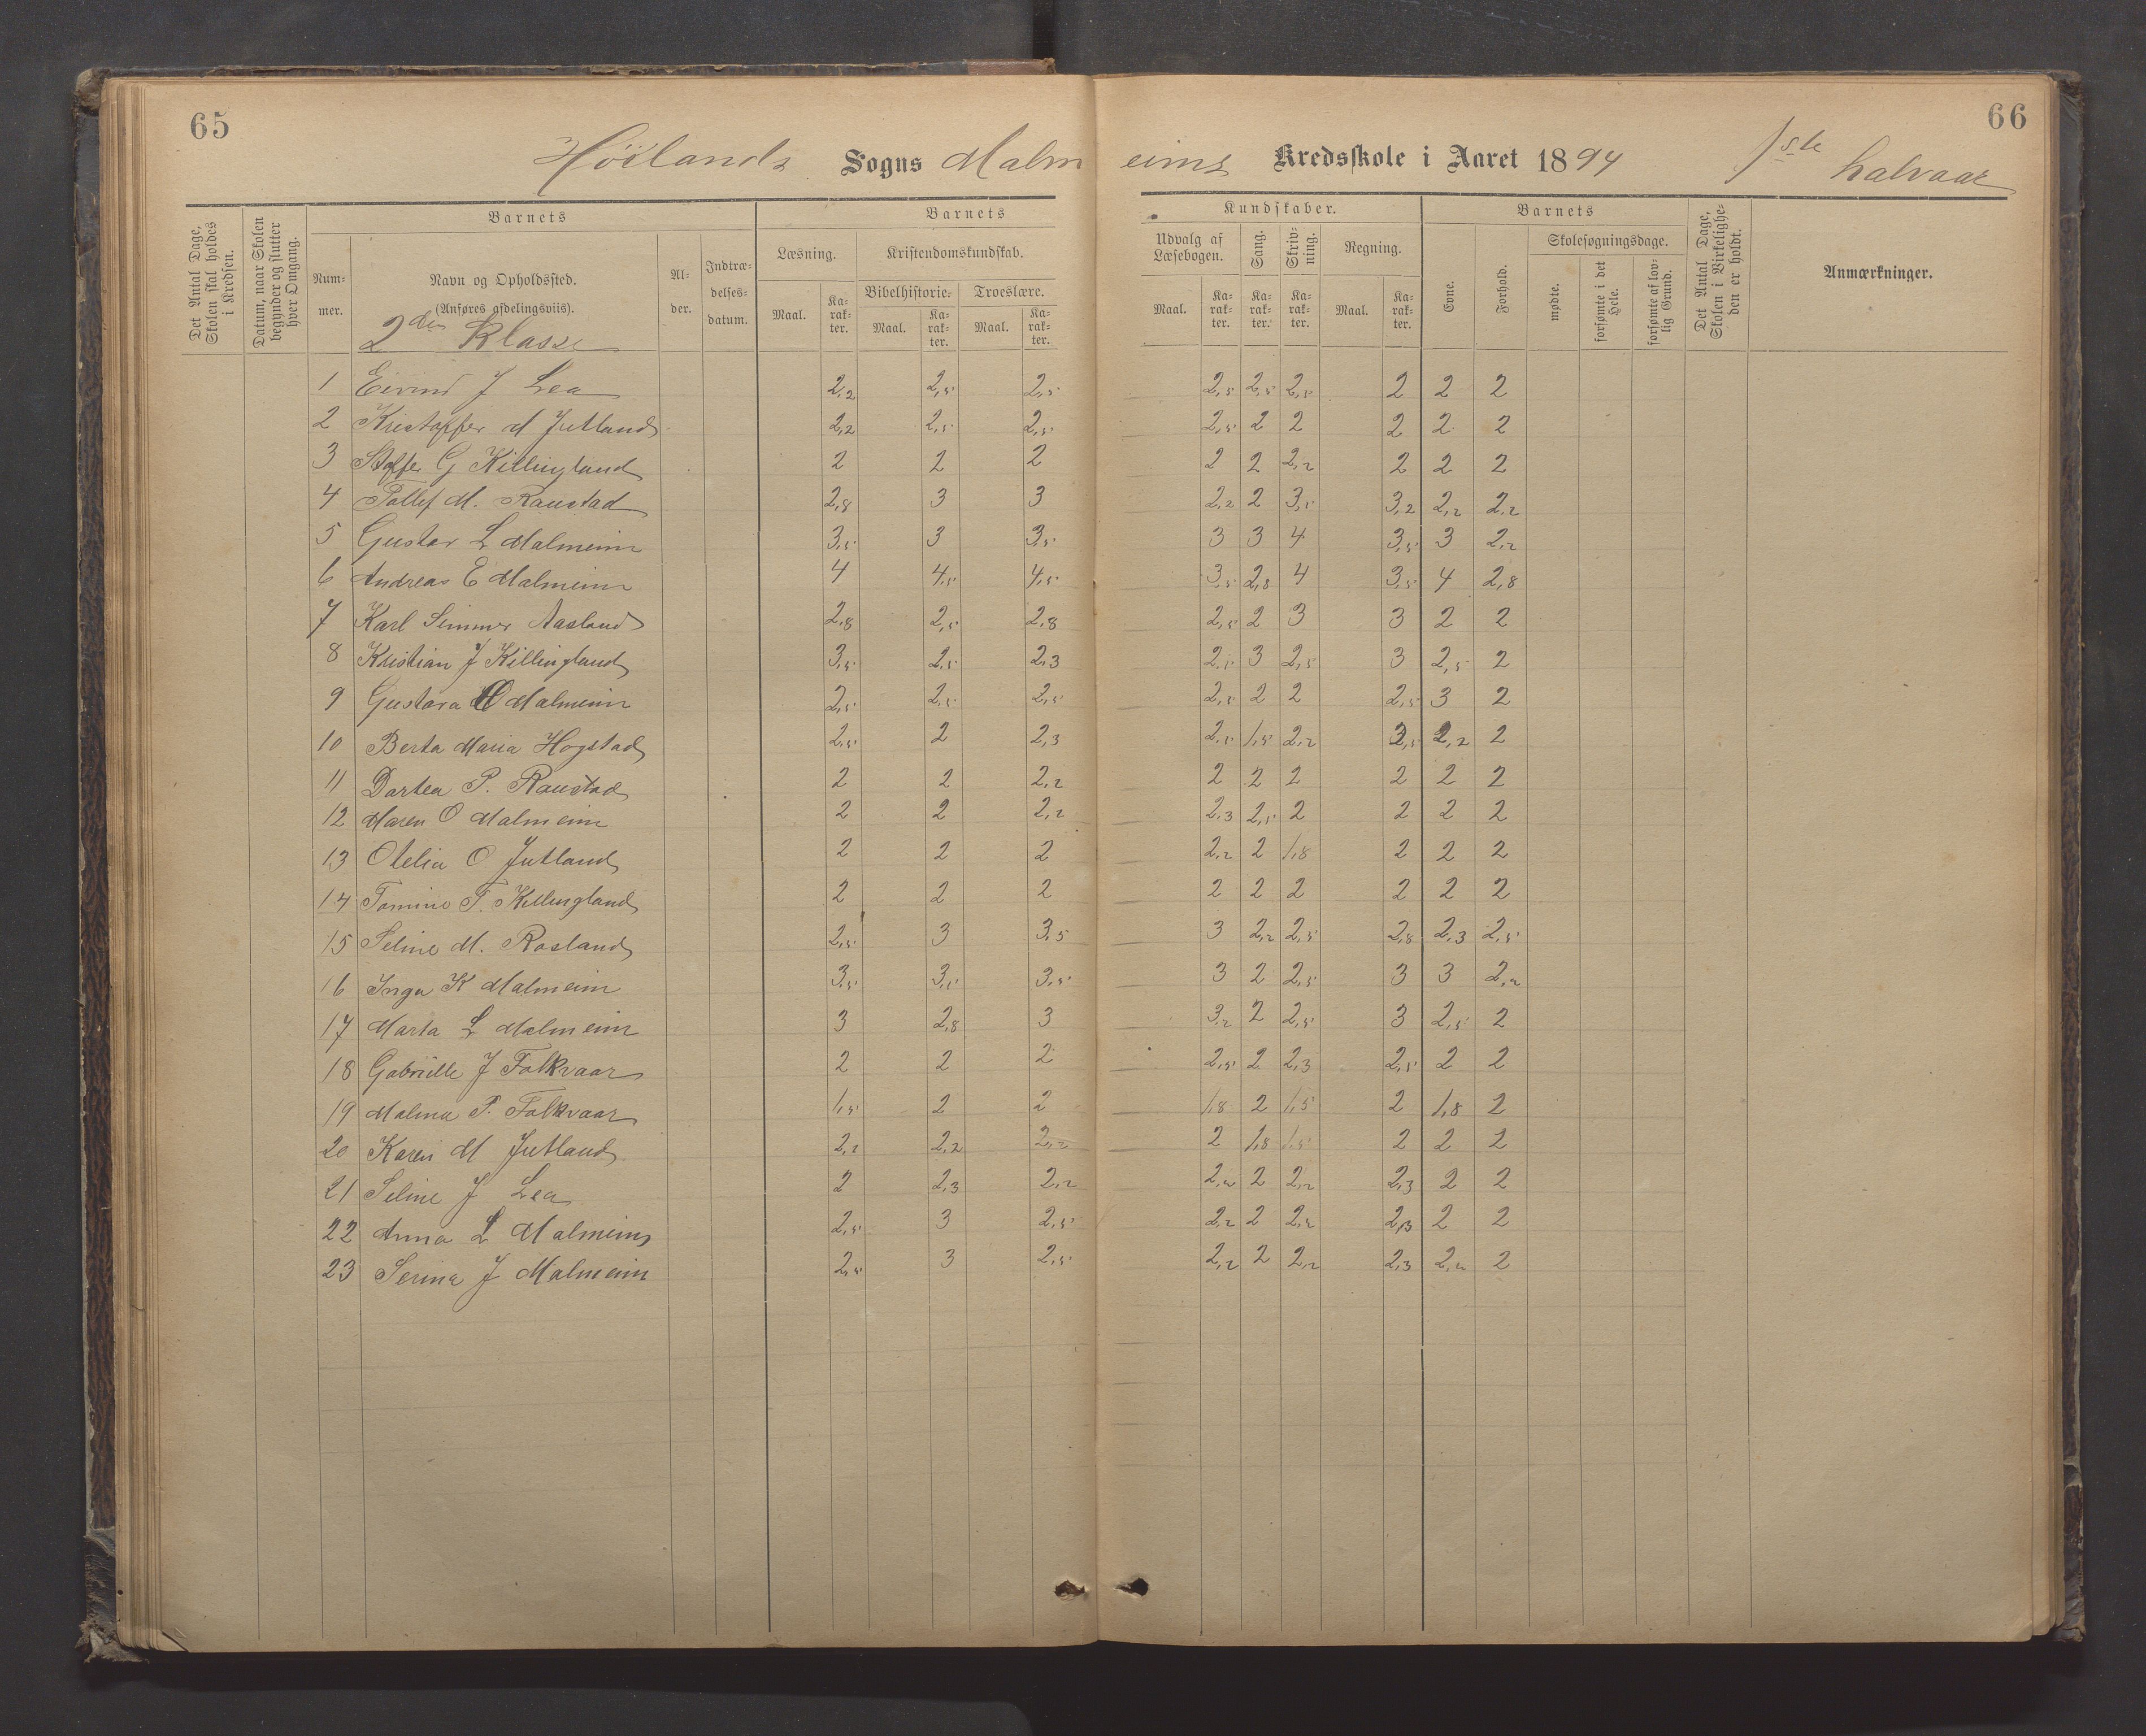 65
66
Höilands Sogns Malmeims Kredsskole i Aaret 1894 1ste halvaar
Det Antal Dage, Skolen skal holdes i Kredsen.
Datum, naar Skolen begynder og slutter hver Omgang.
Barnets
Nummer.
Navn og Opholdssted.
(Anføres afdelingsviis).
2den Klasse
Alder.
Indtrædelsesdatum.
Barnets
Kundskaber.
Læsning.
Maal.
Karakter.
Kristendomskundskab.
Bibelhistorie.
Maal.
Karakter.
Troeslære.
Maal.
Karakter.
Udvalg af Læsebogen.
Maal.
Karakter.
Sang.
Karakter.
Skrivning.
Karakter.
Regning.
Maal.
Karakter.
Barnets
Evne.
Forhold.
Skolesøgningsdage.
mødte.
forsømte i det Hele.
forsømte af lovlig Grund.
Det Antal Dage, Skolen i Virkeligheden er holdt.
Anmærkninger.
1 Eivind J Lea 2,2 2,5 2,5 2,5 2,5 2,5 2 2 2
2 Kristoffer M Jutland 2,2 2,5 2,5 2,5 2 2 2 2 2
3 Stoffer G Killingland 2 2 2 2 2 2,2 2 2 2
4 Tollef M. Raustad 2,8 3 3 2,2 2 3,5 3,2 2,2 2,2
5 Gustav L Malmeim 3,5 3 3,5 3 3 4 3,5 3 2,2
6 Andreas E Malmeim 4 4,5 4,5 3,5 2,8 4 3,5 4 2,8
7 Karl Simmer Aasland 2,8 2,5 2,8 2,5 2 3 3 2 2
8 Kristian J Killingland 3,5 2,5 2,3 2,5 3 2,5 3 2,5 2
9 Gustava O Malmeim 2,5 2,5 2,5 2,5 2 2 2,5 3 2
10 Berta Maria Hogstad 2,5 2 2,3 2,5 1,5 2,2 3,5 2,2 2
11 Dortea P. Raustad 2 2 2,2 2 2 2 2 2 2
12 Maren O Malmeim 2 2 2,2 2,3 2,5 2 2 2 2
13 Otelia O Jutland 2 2 2 2,2 2 1,8 2 2 2
14 Tomine T. Killingland 2 2 2 2 2 2 2 2 2
15 Seline M. Rosland 2,5 3 3,5 3 2,2 2,5 2,8 2,3 2,5
16 Inga K Malmeim 3,5 3,5 3,5 3 2 2,5 3 3 2,2
17 Marta L Malmeim 3 2,8 3 3,2 2 2,5 3 2,5 2
18 Gabrielle J Folkvaar 2 2 2 2,5 2 2,3 2,5 2 2
19 Malma P. Folkvaar 1,5 2 2 1,8 2 1,5 2 1,8 2
20 Karen M Jutland 2,2 2,2 2,2 2 1,8 1,5 2 2 2
21 Seline J Lea 2 2,3 2,2 2,2 2 2,2 2,3 2 2
22 Anna L Malmeim 2,5 3 2,5 2,2 2 2,2 2,3 2 2
23 Serina J Malmeim 2,5 3 2,5 2,2 2 2,2 2,3 2,2 2